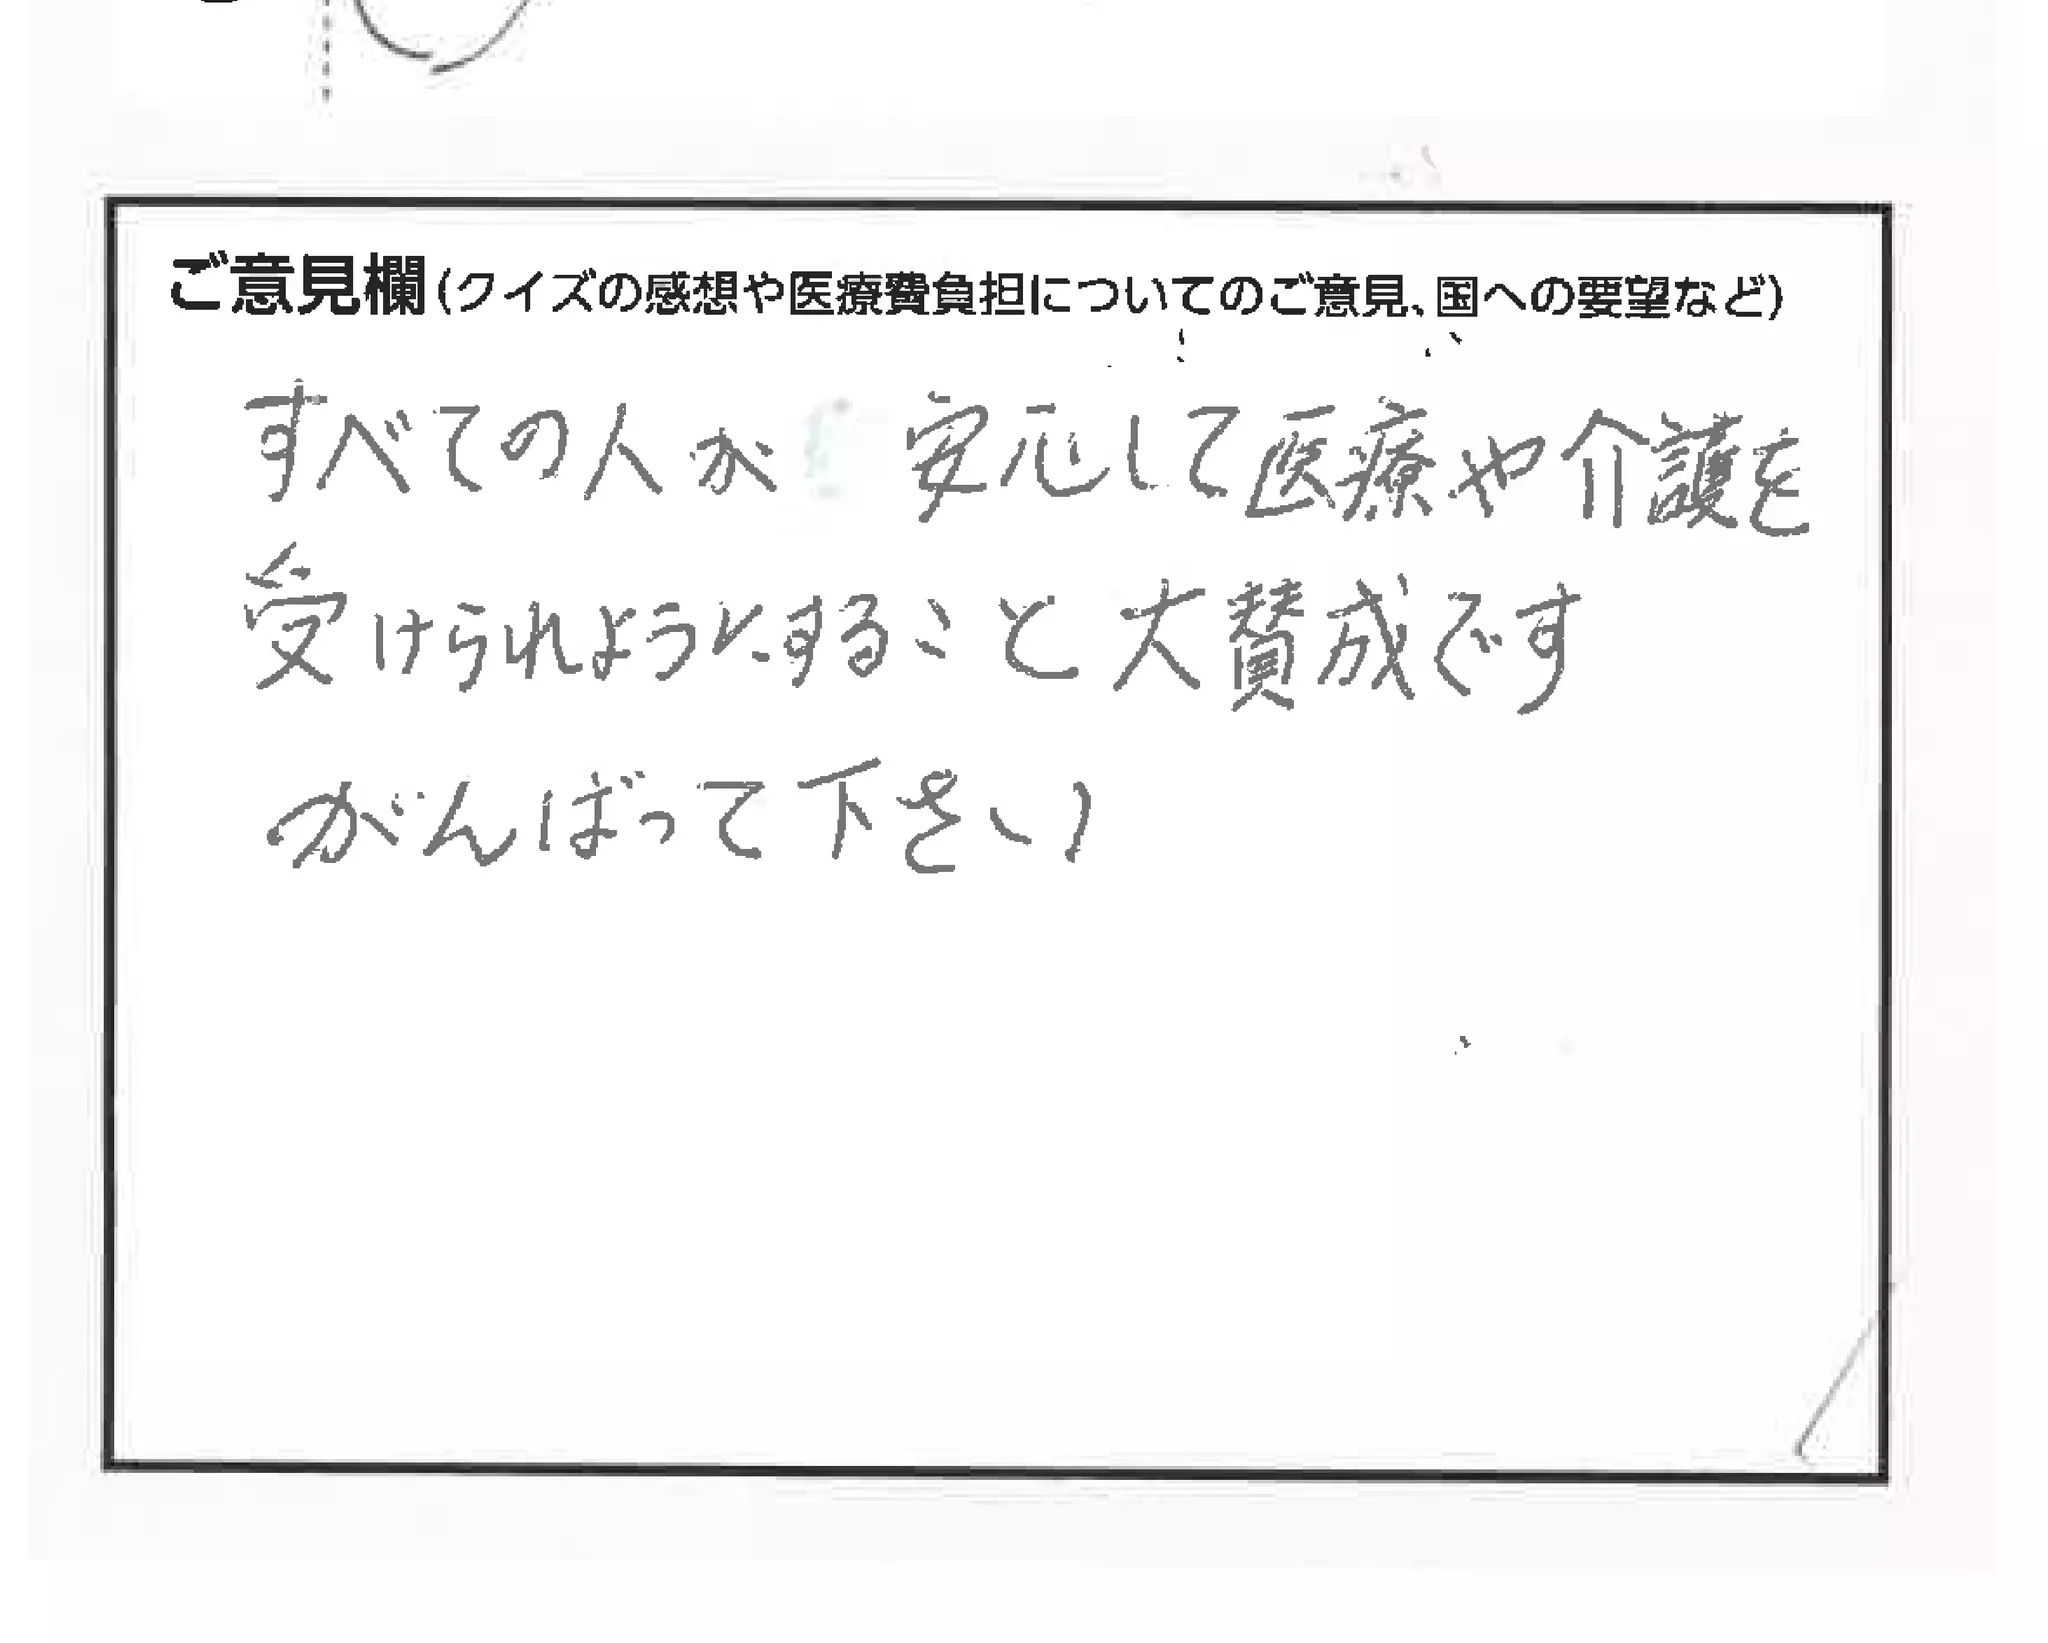 ご意見欄(クイズの感想や医療費負担についてのご意見、国への要望など)
すべての人が 安心して医療や介護を
受けられようにすること大賛成です
がんばって下さい